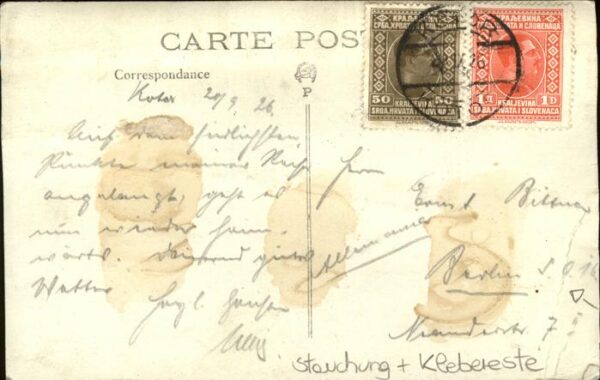 CARTE POS
Correspondance
P
Kotor 20/9 26.
Auf dem südlichsten
Punkte meiner Reise
angelangt, geht es
nun wieder heim-
wärts. Dauernd gutes
Wetter
Herzl.
Herrn
Ernst Bittner
Berlin S.O. 16
Neanderstr. 7 II
КРАЉЕВИНА
СРБА, ХРВАТА И СЛОВЕНАЦА
50 50
KRALJEVINA
SRBA, HRVATA I SLOVENACA
КРАЉЕВИНА
СРБА, ХРВАТА И СЛОВЕНАЦА
1 Д 1 D
KRALJEVINA
SRBA, HRVATA I SLOVENACA
Stauchung + Klebereste